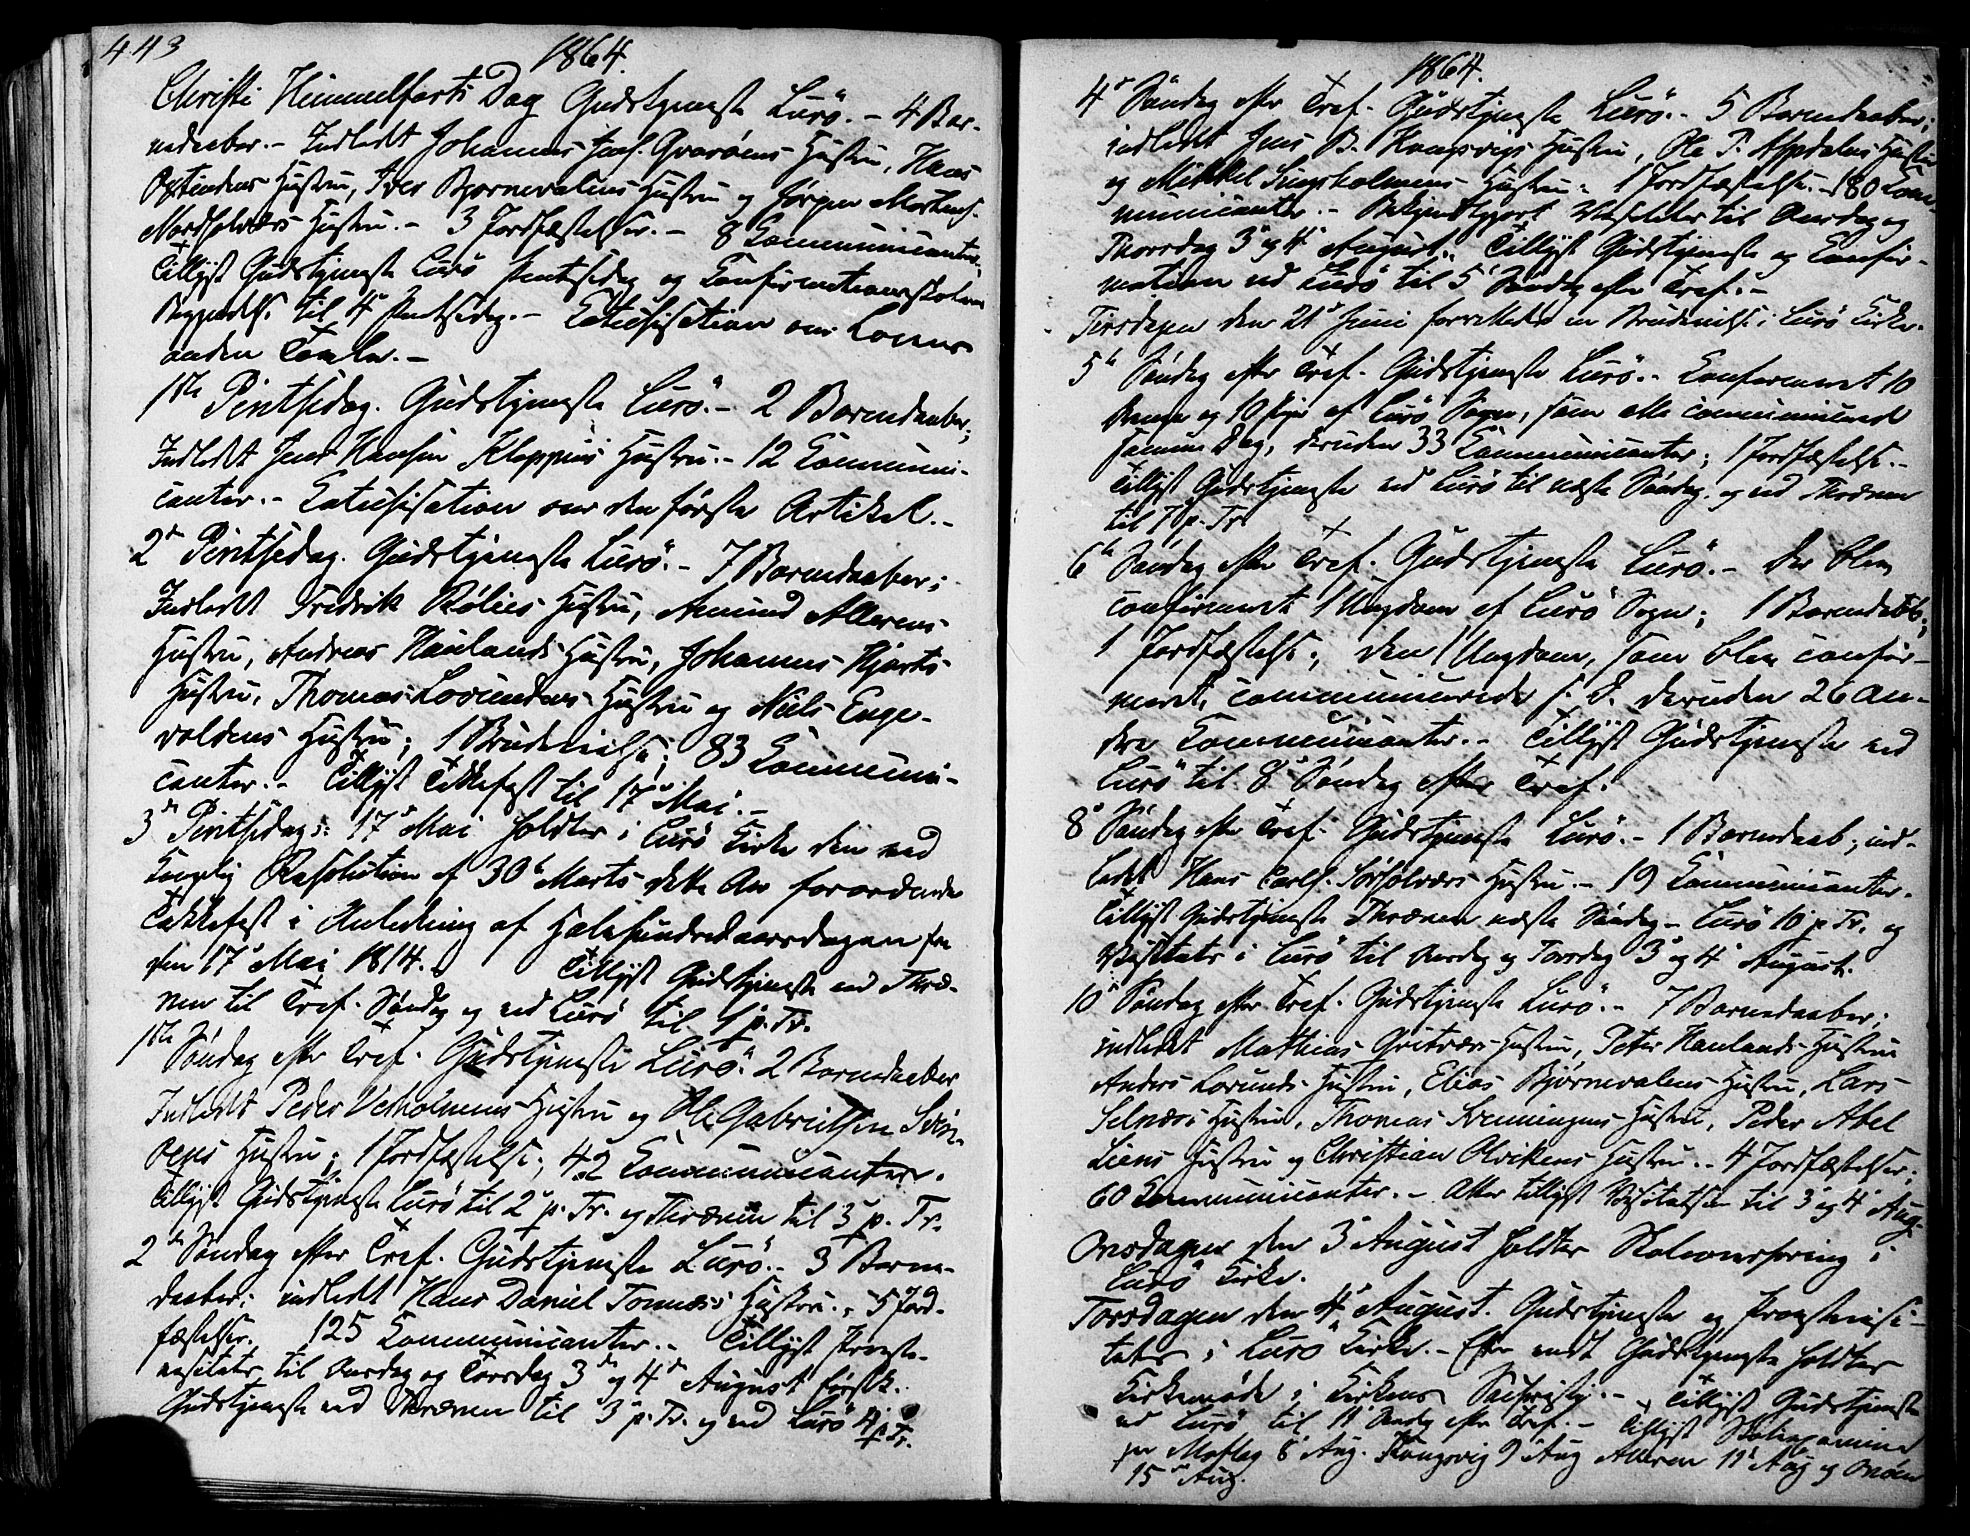 443
1864.
Christi Himmelfarts Dag Gudstjeneste Lurö. - 4 Bar-
nedaaber. - Indledt Johannes Jac. Qvarøens Hustru, Hans
Hustru, Iver Bjørnevalens Hustru og Jørgen Mortens.
Nordsolværs Hustru. - 3 Jordfæstelser. - 8 Communicanter.
Tillyst Gudstjeneste Lurö Pintsedag og Confirmationsskolens
Begyndelse til 4 Pintsedag. - Catechisation over Lovens
anden Tavle. -
1ste Pintsedag. Gudstjeneste Lurö. - 2 Barnedaaber;
Indledt Jens Hansen Kleppens Hustru. - 12 Communi-
canter. - Catechisation over den første Artikel. -
2n Pintsedag. Gudstjeneste Lurö. - 7 Barnedaaber;
Indledt Fredrik Hustru, Amund Alderens
Hustru, Andreas Haulands Hustru, Johannes Hjarts
Hustru, Thomas Lovundens Hustru og Niels Enge-
voldens Hustru; 1 Brudevielse; 83 Communi-
canter. - Tillyst Takkefest til 17n Mai. -
3n Pintsedag: 17n Mai holdtes i Lurö Kirke den ved
Kongelig Resolution af 30n Marts dette Aar forordnede
Takkefest i Anledning af Halvhundredaarsdagen fra
den 17n Mai 1814. - Tillyst Gudstjeneste ved Thræ-
nen til Tref. Søndag og ved Lurö til 1 p. Tr.
1ste Søndag efter Tref. Gudstjeneste Lurö. 2 Barnedaaber
Indledt Peder Vedholmens Hustru og Ole Gabrielsen
Hustru; 1 Jordfæstelse; 42 Communicanter.
Tillyst Gudstjeneste Lurö til 2n p. Tr. og Thrænen til 3 p. Tr.
2n Søndag efter Tref. Gudstjeneste Lurö. - 3 Barne-
daaber; indledt Hans Daniel Tonnæs Hustru. - 5 Jord-
fæstelser. 125 Communicanter. - Tillyst Provste-
visitats til Onsdag og Torsdag 3n og 4n August
Gudstjeneste ved Thrænen til 3n p. Tr. og ved Lurö 4 p. Tr.
1864.
4n Søndag efter Tref. Gudstjeneste Lurö. - 5 Barnedaaber;
indledt Jens B. Kongsvigs Hustru, Ole P. Aspdalens Hustru
og Mikkel Hustru. - 1 Jordfæstelse. - 180 Com-
municanter. - Bekjendtgjort Visitats til Onsdag og
Thorsdag 3n og 4n August. Tillyst Gudstjeneste og Confir-
mation ved Lurö til 5n Søndag efter Tref. -
Tirsdagen den 21n Juni forrettedes en Brudevielse i Lurö Kirke.
5n Søndag efter Tref. Gudstjeneste Lurö. - Confirmeret 10
Drenge og 10 Piger af Lurö Sogn, som alle communicerede
samme Dag, desuden 33 Communicanter; 1 Jordfæstelse. -
Tillyst Gudstjeneste ved Lurö til næste Søndag og ved Thrænen
til 7 p. Tr.
6n Søndag efter Tref. Gudstjeneste Lurö. - Der blev
confirmeret 1 Ungdom af Lurö Sogn; 1 Barnedaab;
1 Jordfæstelse; den 1 Ungdom, som blev confir-
meret, communicerede s. D. desuden 26 an-
dre Communicanter. - Tillyst Gudstjeneste ved
Lurö til 8n Søndag efter Tref.
8n Søndag efter Tref. Gudstjeneste Lurö. - 1 Barnedaab; ind-
ledet Hans Carls. Sørsolværs Hustru. - 19 Communicanter.
Tillyst Gudstjeneste Thrænen næste Søndag - Lurö 10 p. Tr. og
Visitats i Lurö til Onsdag og Torsdag 3n og 4n August.
10n Søndag efter Tref. Gudstjeneste Lurö. - 7 Barnedaaber;
indledet Mathias Gritvær Hustru, Peter Haulands Hustru
Anders Lovunds Hustru, Elias Bjørnevalens Hustru, Lars
Selnæs Hustru, Thomas Svenningens Hustru, Peder Abel
Liens Hustru og Christian Olvikens Hustru. - 4 Jordfæstelser;
60 Communicanter. - Atter tillyst Visitatsen til 3n og 4n Aug.
Onsdagen den 3n August holdtes i
Lurö Kirke.
Torsdagen den 4n August. Gudstjeneste og Provstevisi-
tats i Lurö Kirke. - Efter endt Gudstjeneste holdtes
Kirkemøde i Kirkens Sachristy. - Tillyst Gudstjeneste
ved Lurö til 11n Søndag efter Tref. - Tillyst Skoleexamina
paa 8n Aug. Kongsvig 9n Aug Alderen 11n Aug og Onøen
15n Aug.